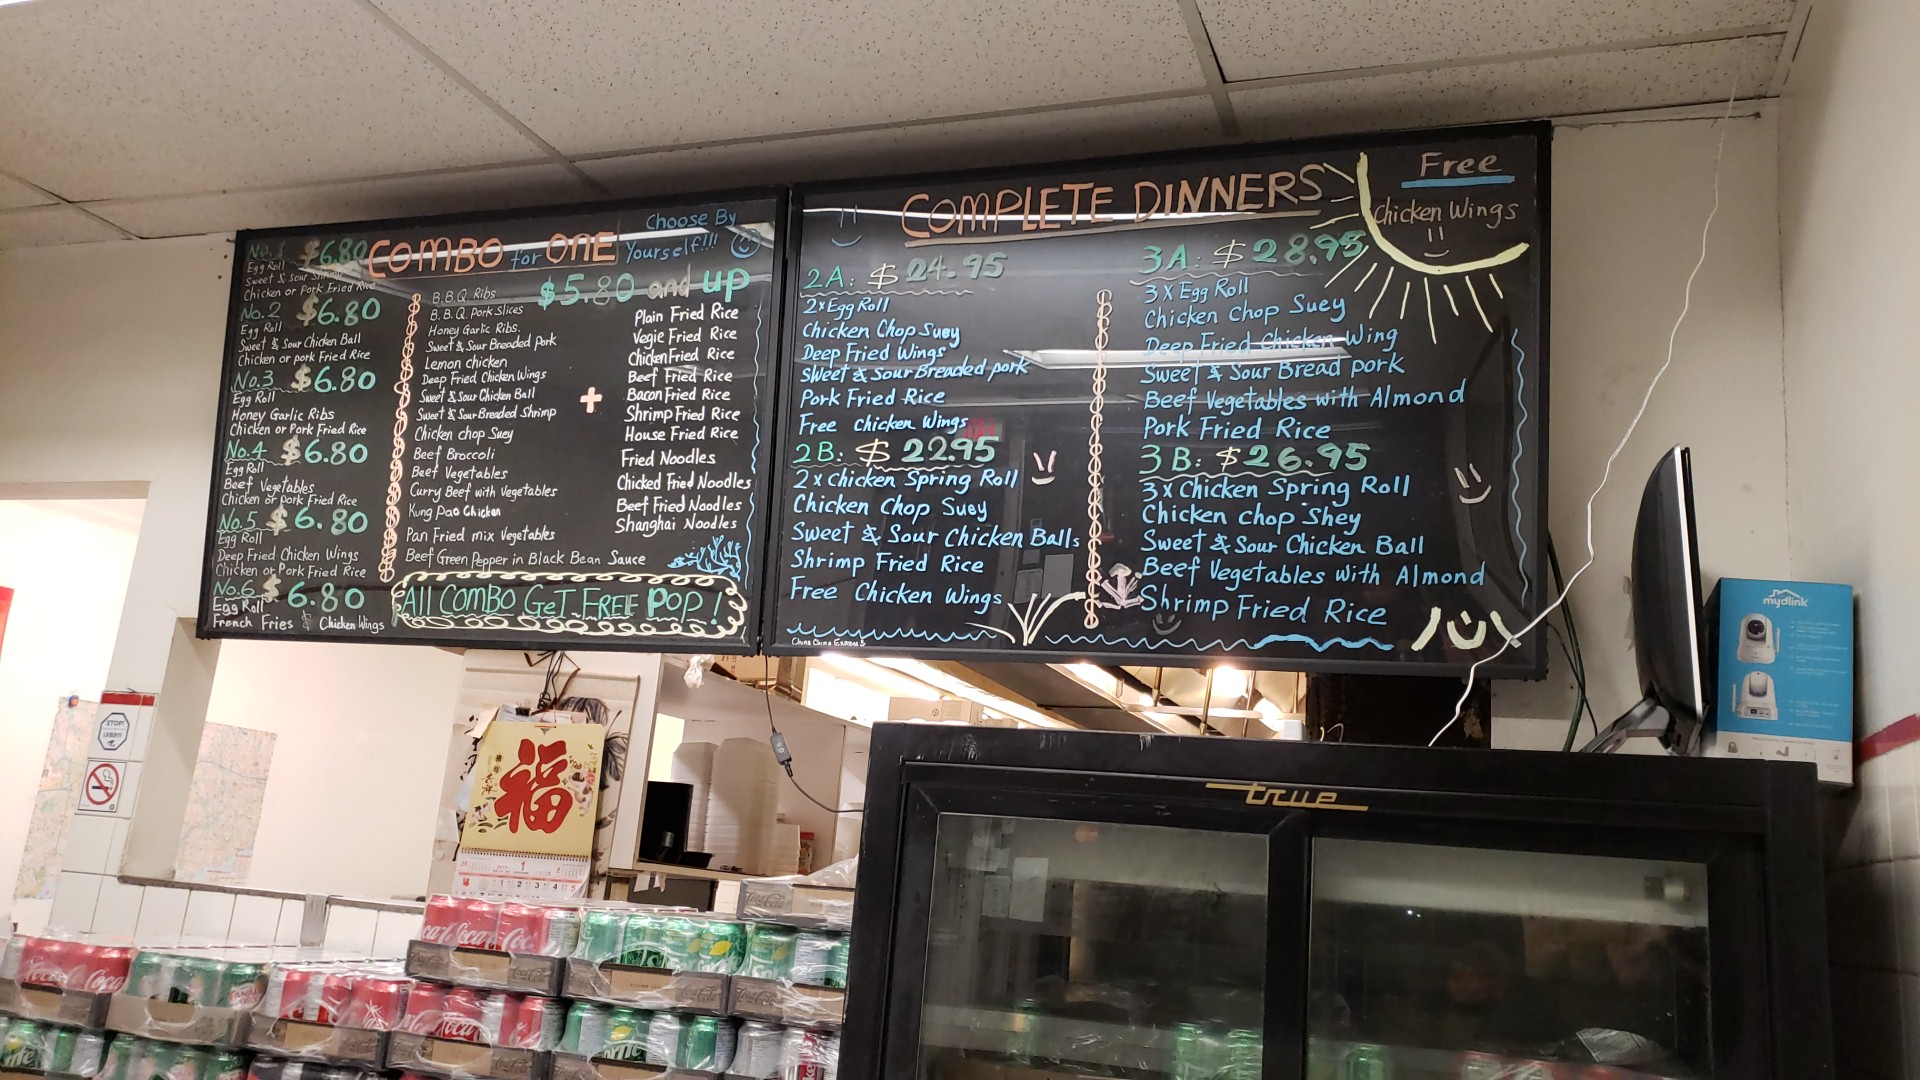 No.1 $6.80
Egg Roll
Sweet & Sour Shrimp
Chicken or Pork Fried Rice
No.2 $6.80
Egg Roll
Sweet & Sour Chicken Ball
Chicken or pork Fried Rice
No.3 $6.80
Egg Roll
Honey Garlic Ribs
Chicken or Pork Fried Rice
No.4 $6.80
Egg Roll
Beef Vegetables
Chicken or pork Fried Rice
No.5 $6.80
Egg Roll
Deep Fried Chicken Wings
Chicken or Pork Fried Rice
No.6 $6.80
Egg Roll
French Fries & Chicken Wings
COMBO for ONE
Choose By
Yourself!!!
$5.80 and up
B.B.Q. Ribs
B.B.Q. Pork Slices
Honey Garlic Ribs.
Sweet & Sour Breaded pork
Lemon chicken
Deep Fried Chicken Wings
Sweet & Sour Chicken Ball
Sweet & Sour Breaded Shrimp
Chicken chop Suey
Beef Broccoli
Beef Vegetables
Curry Beef with Vegetables
Kung Pao Chicken
Pan Fried mix Vegetables
Beef Green Pepper in Black Bean Sauce
+
Plain Fried Rice
Vegie Fried Rice
Chicken Fried Rice
Beef Fried Rice
Bacon Fried Rice
Shrimp Fried Rice
House Fried Rice
Fried Noodles
Chicked Fried Noodles
Beef Fried Noodles
Shanghai Noodles
All COMBO GeT FREE POP!
COMPLETE DINNERS
Free
Chicken Wings
2A: $24.95
2x Egg Roll
Chicken Chop Suey
Deep Fried Wings
Sweet & Sour Breaded pork
Pork Fried Rice
Free chicken Wings
2B: $22.95
2x Chicken Spring Roll
Chicken Chop Suey
Sweet & Sour Chicken Balls
Shrimp Fried Rice
Free Chicken Wings
China China Express
3A: $28.95
3X Egg Roll
Chicken Chop Suey
Deep Fried Chicken Wing
Sweet & Sour Bread pork
Beef Vegetables with Almond
Pork Fried Rice
3B: $26.95
3x Chicken Spring Roll
Chicken Chop Shey
Sweet & Sour Chicken Ball
Beef Vegetables with Almond
Shrimp Fried Rice
mydlink
STOP!
福
1
1 2 3 4 5
true
Coca-Cola
Sprite